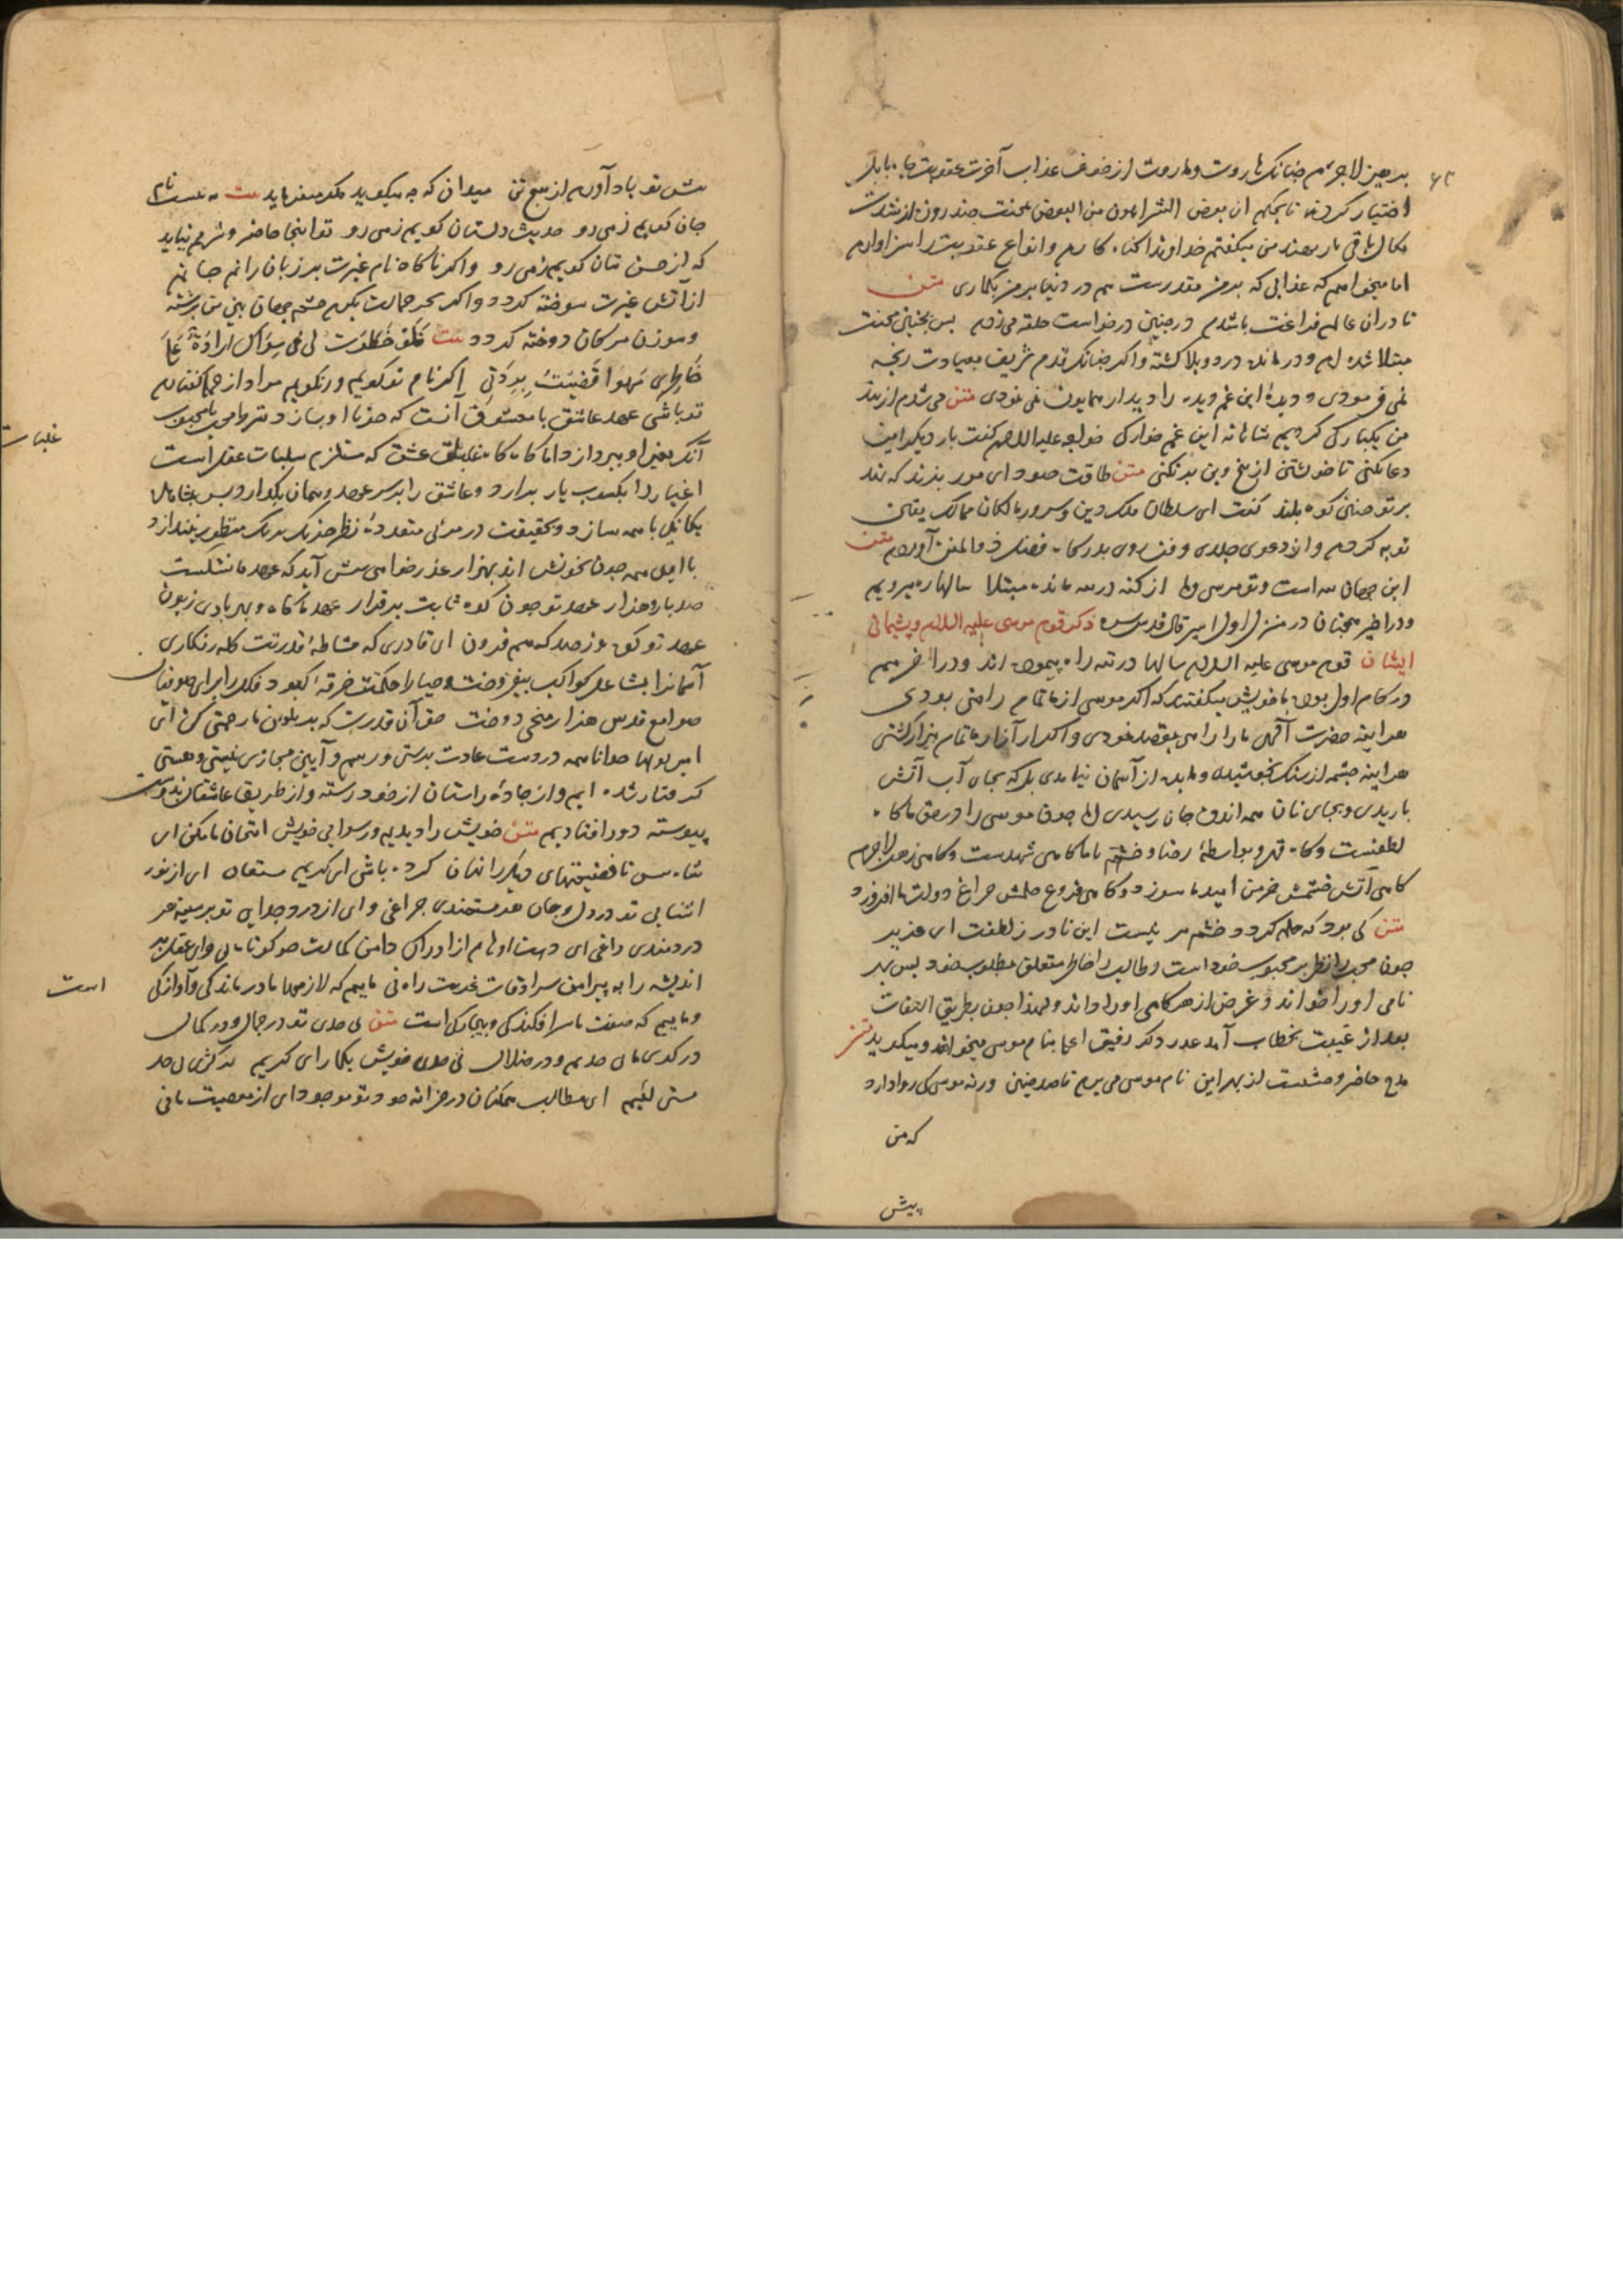 بپرهیز لاجرم چنانک هاروت و ماروت از خوف عذاب آخرت عقوبت چاه بابل
۶۳
اختیار کردند تا بحکم ان بعض الشر اهون من البعض بمحنت چند روزه از شدت
میگفتم خداوندا گناه کارم و انواع عقوبت را سزاوارم
اما میخواهم که عذابی که بر من مقدرست هم در دنیا بر من بگماری متن
تا در ان عالم فراغت باشدم در چنین درخواست حلقه می‌زدم پس بچنین محنت
مبتلا شده ام و درمانده درد و بلا گشته و اگر چنانک قدم شریف بعیادت رنجه
نمی فرمودی و دیده این غم دیده را دیدار همایون نمی نمودی متن می شدم از بند
من یکبارگی کردیم شاهانه این غم خوارگی خواجه علیه السلام گفت بار دیگر این
دعا نکنی تا خویشتن از بیخ و بن بر نکنی متن طاقت
بر تو چنین کوه بلند گفت ای سلطان ملک دین و سرور مالکان ممالک یقین
توبه کردم و از دعوی جلدی و فن روی بدرگاه فضل ذوالمنن آوردم متن
این جهان تیه است و تو موسی و ما از گنه در تیه مانده مبتلا سالها ره میرویم
و در اخیر همچنان در منزل اول اسیر قال قدس سره ذکر قوم موسی علیه السلام و پشیمانی
ایشان قوم موسی علیه السلام سالها در تیه راه پیموده اند و در آخر هم
در گام اول بوده با خویش میگفتند که اگر موسی از ما تمام راضی بودی
هر اینه حضرت الهی ما را راهی بمقصد نمودی و اگر از آزار ما تمام بیزار گشتی
هر اینه چشمه از سنگ نجوشیدی و مایده از آسمان نیامدی بلکه بجای آب آتش
باریدی و بجای نان همه اندوه جان رسیدی اما چون موسی را در حق ما گاه
لطفست و گاه قهر و بواسطه رضا و خشم با ما گاهی شهدست و گاهی زهر لاجرم
گاهی آتش خشمش خرمن امید ما سوزد و گاهی فروغ حلمش چراغ دولت ما افروزد
متن کی بود که حلم گردد خشم نیز نیست این نادر ز لطفت ای عزیز
چون محب را نظر بر محبوب خود است و طالب را خاطر متعلق مطلوب خود پس بهر
نامی او را خواند و غرض از هر کامی او را داند و لهذا چون بطریق التفات
بعد از غیبت بخطاب آمد میخواند و میگوید متن
مدح حاضر وحشتست از بهر این نام موسی می برم قاصد چنین ورنه موسی کی روا دارد
که من
پیش
پیش تو یاد آورم از هیچ تن میدان که چه میگوید بلکه میفرماید بیت
جان گویم زمی رو حدیث دلستان گویم زمی رو تو اینجا حاضر و شرمم نیاید
که از حسن بتان گویم زمی رو و اگر ناگاه نام غیرت بر زبان رانم جانم
از آتش غیرت سوخته گردد و اگر بجز جمالت نگرم چشم جهان بین من برشته
و سوزن مژگان دوخته گردد بیت فلو خطرت لی فی سواک ارادة علی
خاطری سهوا قضیت بردتی اگر نام تو گویم ور نگویم مراد از جمله گفتارم
تو باشی عهد عاشق با معشوق آنست که جز با او نسازد
آنکه بغیر او نپردازد اما گاه گاه عشق که مستلزم سلبیات عقل است
غلبات
اغیار را بکسوت یار برآرد و عاشق را بر سر عهد و پیمان نگذارد پس
یگانگی با همه سازد و بحقیقت در مرئی متعدده نظر جز بر یک منظور نیندازد
با این همه چون بخویش آید بهزار عذر خواهی پیش آید که عهد ما بشکست
صد بار و هزار عهد تو چون کوه ثابت برقرار عهد ما کاه و بهر بادی زبون
عهد تو کوه و ز صد که هم فزون ای قادری که مشاطه قدرتت کله زنگاری
آسمانرا بمشاعل کواکب بیفروخت و خیاط حکمتت خرقه کبود فلک را برای صوفیان
صوامع قدس هزار میخی دوخت حق آن قدرت که بر تلوین ما رحمتی کن ای
امیر لونها چون ما همه در دست عادت پرستی و رسم و آیین مجازی نیستی و هستی
گرفتار شده ایم و از جاده راستان از خود رسته و از طریق عاشقان بدوست
پیوسته دور افتادیم متن خویش را دیدیم و رسوایی خویش امتحان ما مکن ای
شاه بیش تا فضیحتهای دیگر را نهان کرده باشی ای کریم مستعان ای از نور
اشنایی تو در دل و جان هر مستمندی چراغی و ای از درد جدایی تو بر سینه هر
دردمندی داغی ای دست اوهام از ادراک دامن کمالت چو کوتاه مانی و ای عقل
اندیشه را به پیرامن سرادقات عزت راه نی ماییم که لازمه ما درماندگی و آوارگی
است
و ماییم که صفت ما سرافکندگی و بیچارگی است متن بی حدی تو در جمال و در کمال
در کژی ما بی حدیم و در ضلال بی حدی خویش بگمار ای کریم بر کژی بی حد
مشتی لئیم ای مطالب ممکنات در خزانه جود تو موجود ای از معصیت ما نی